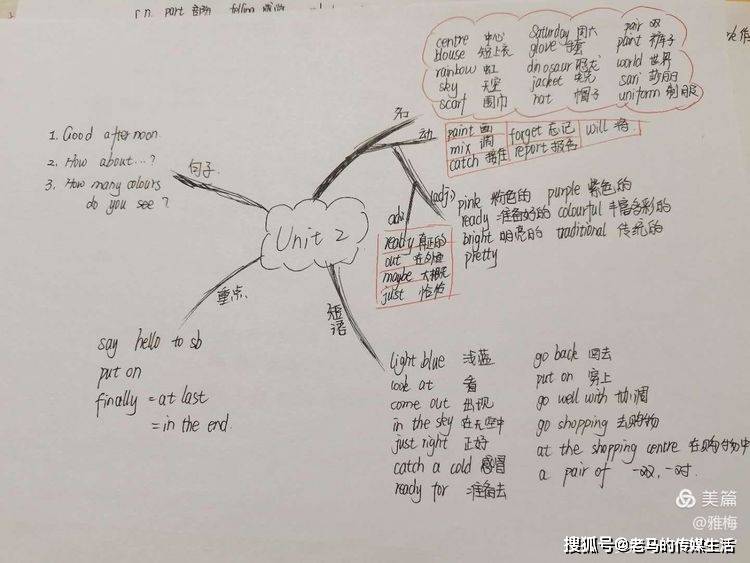 part 部分
centre 中心 Saturday 周六 pair 双
blouse 短上衣 glove 手套 pant 裤子
rainbow 虹 dinosaur 恐龙 world 世界
sky 天空 jacket 夹克 sari 莎丽
scarf 围巾 hat 帽子 uniform 制服
名
动
paint 画 forget 忘记 will 将
mix 调 report 报告
catch 接住
1. Good afternoon.
2. How about...?
3. How many colours
do you see?
句子
Unit 2
(adj.)
pink 粉色的 purple 紫色的
ready 准备好的 colourful 丰富多彩的
bright 明亮的 traditional 传统的
pretty
adv
ready 真正的
out 在外面
maybe 大概
just 恰恰
重点
say hello to sb
put on
finally = at last
= in the end.
短语
light blue 浅蓝 go back 回去
look at 看 put on 穿上
come out 出现 go well with 协调
in the sky 在天空中 go shopping 去购物
just right 正好 at the shopping centre 在购物中
catch a cold 感冒 a pair of 一双,一对
ready for 准备去
美篇
@雅梅
搜狐号@老马的传媒生活